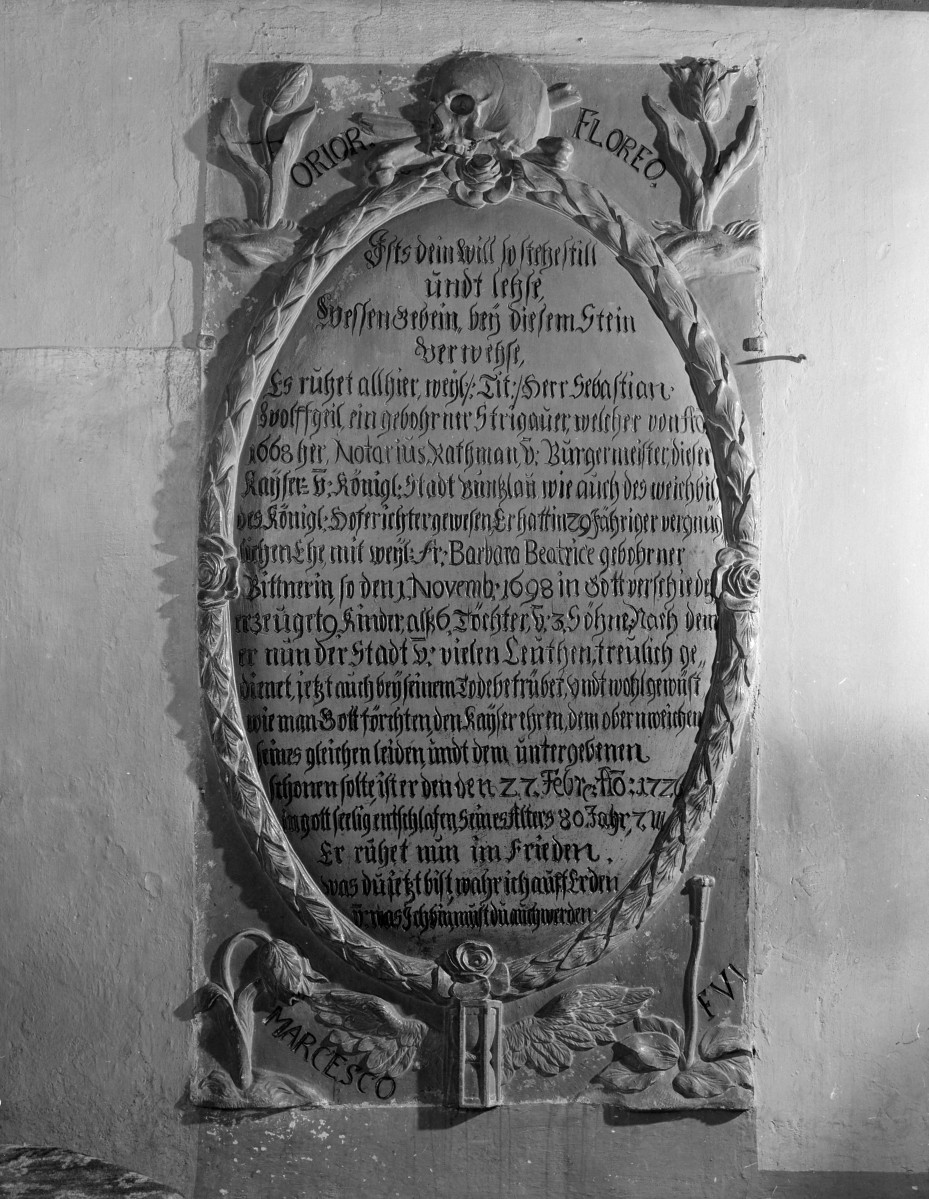 ORIOR.
FLOREO.
Ists dein Will so stehe still
undt lehse,
Wessen Gebein, beÿ diesem Stein
Verwehse,
Es rühet allhier, weyl: /: Tit: / Herr Sebastian
Wolffgeil, ein gebohrner Strigauer, welcher von Ao
1668 her, Notarius, Rathman, v̄: Bürgermeister, dieser
Kaÿser: v̄: Königl: Stadt Buntzlau wie auch des weichbil,,
des Königl: Hoferichter gewesen, Er hatt in 29 Jähriger vergnüg
lichen Ehe, mit weyl: Fr: Barbara Beatrice gebohrner
Bittnerin, so den 1, Novemb: 1698 in Gott verschieden
erzeüget 9, Kinder, alß 6, Töchter, v̄: 3, Söhne, Nach dem
er nun der Stadt v̄: vielen Leüthen, treülich ge,,
dienet, jetzt auch beÿ seinem Tode betrübet, undt wohl gewüst
wie man Gott förchten, den Kaÿser ehren, dem obern weichen
seines gleichen leiden, undt dem untergebenen
schonen solte, ist er den den 27. Febr: Ao: 172
im gott seelig entschlafen, Seines Alters 80 Jahr, 7, W
Er rühet nun im Frieden,
was dü jetzt bist, wahr ich auff Erden
v̄: was Ich bin, must du auch werden
MARCESCO
FVI